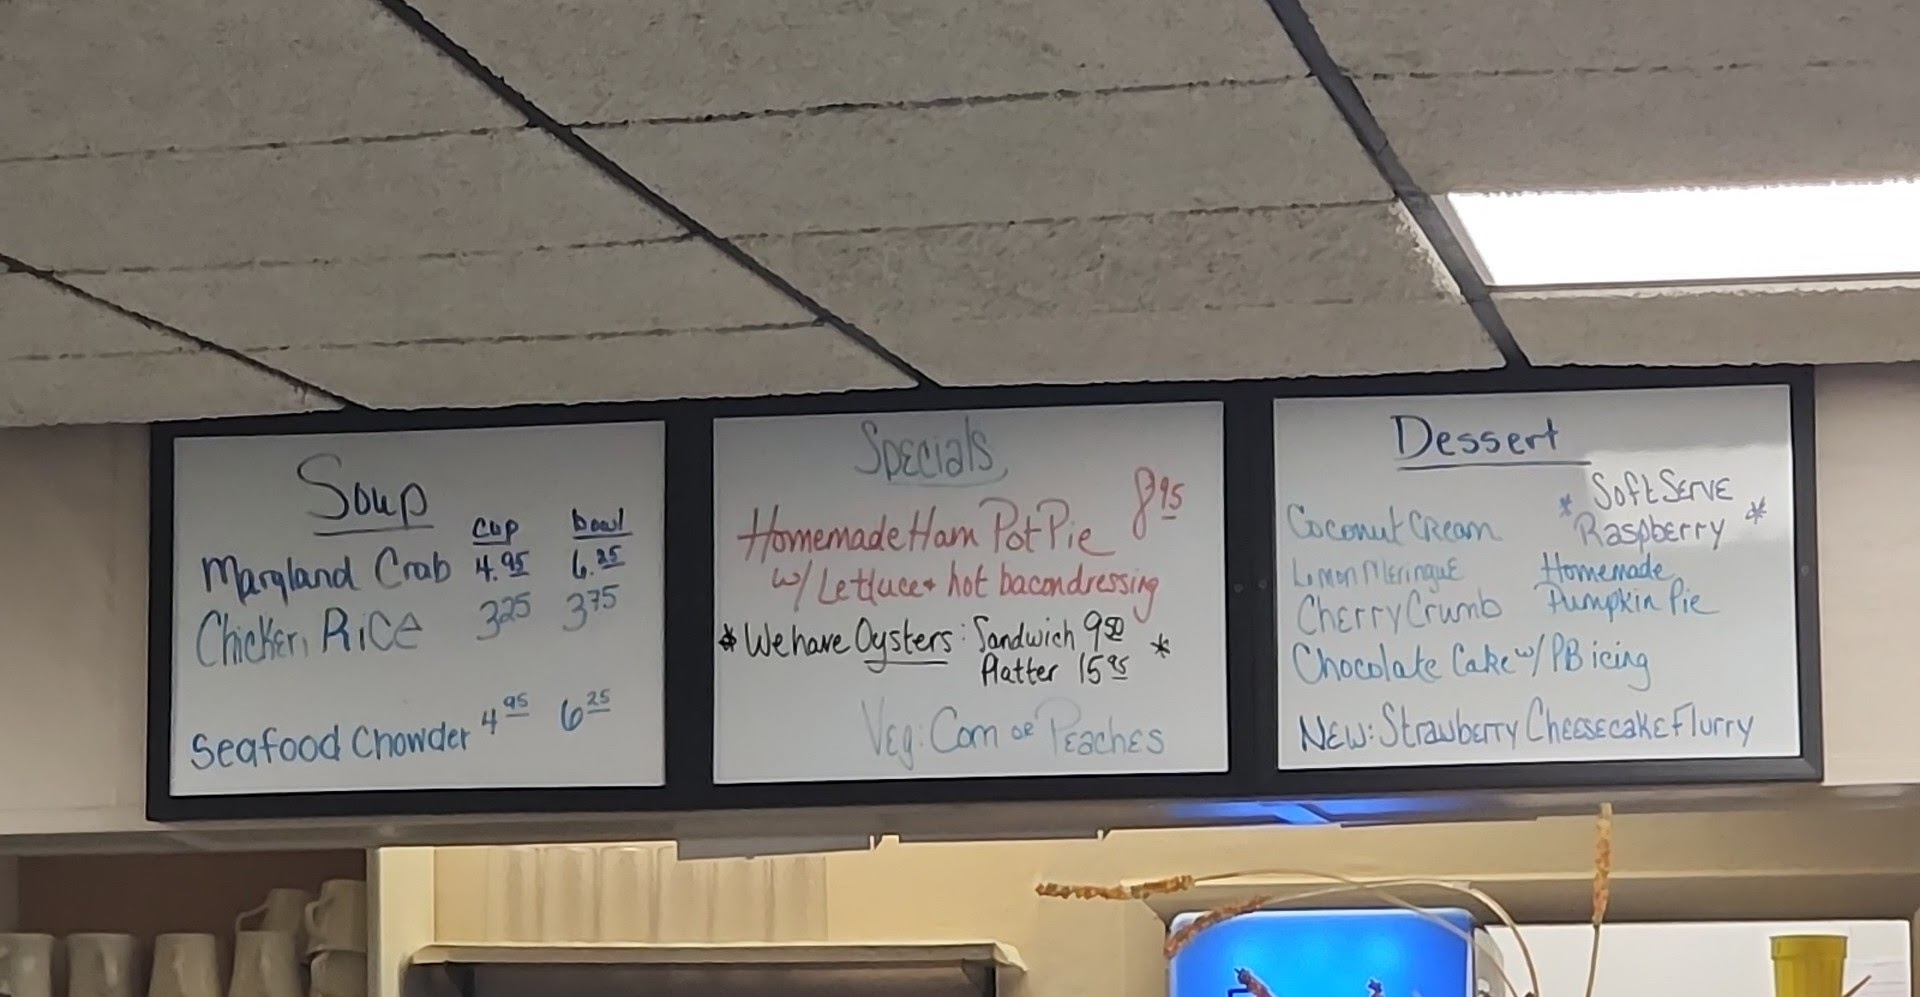 Soup
cup bowl
Maryland Crab 4.95 6.25
Chicken Rice 3 25 3 75
Seafood Chowder 4 95 6 25
Specials
Homemade Ham Pot Pie 8 95
w/ Lettuce + hot bacon dressing
* We have Oysters: Sandwich 9 50 *
Platter 15 95
Veg: Corn or Peaches
Dessert
* Soft Serve *
Raspberry
Coconut Cream
Lemon Meringue
Cherry Crumb
Homemade
Pumpkin Pie
Chocolate Cake w/ PB icing
New: Strawberry Cheesecake Flurry